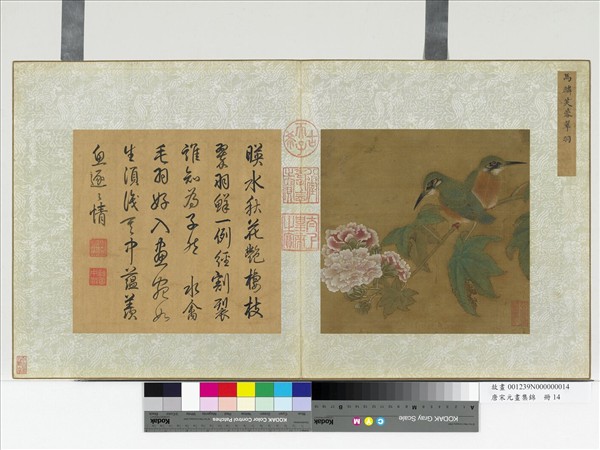 馬麟芙蓉翠羽
暎水秋花艷棲枝
翠羽鮮一例經割裂
誰知為子然 水禽
毛羽好入畫宛如
生須識中蘊羨
魚逐〻情
故畫 001239N000000014
唐宋元畫集錦 冊 14
Kodak Color Control Patches
Kodak
KODAK Gray Scale
C Y M
Kodak